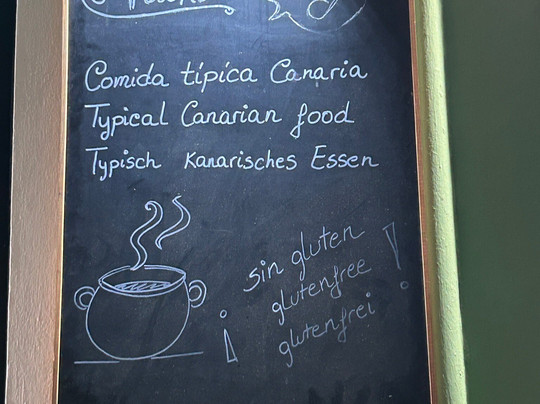 Comida típica Canaria
Typical Canarian food
Typisch Kanarisches Essen
¡ sin gluten !
glutenfree
glutenfrei